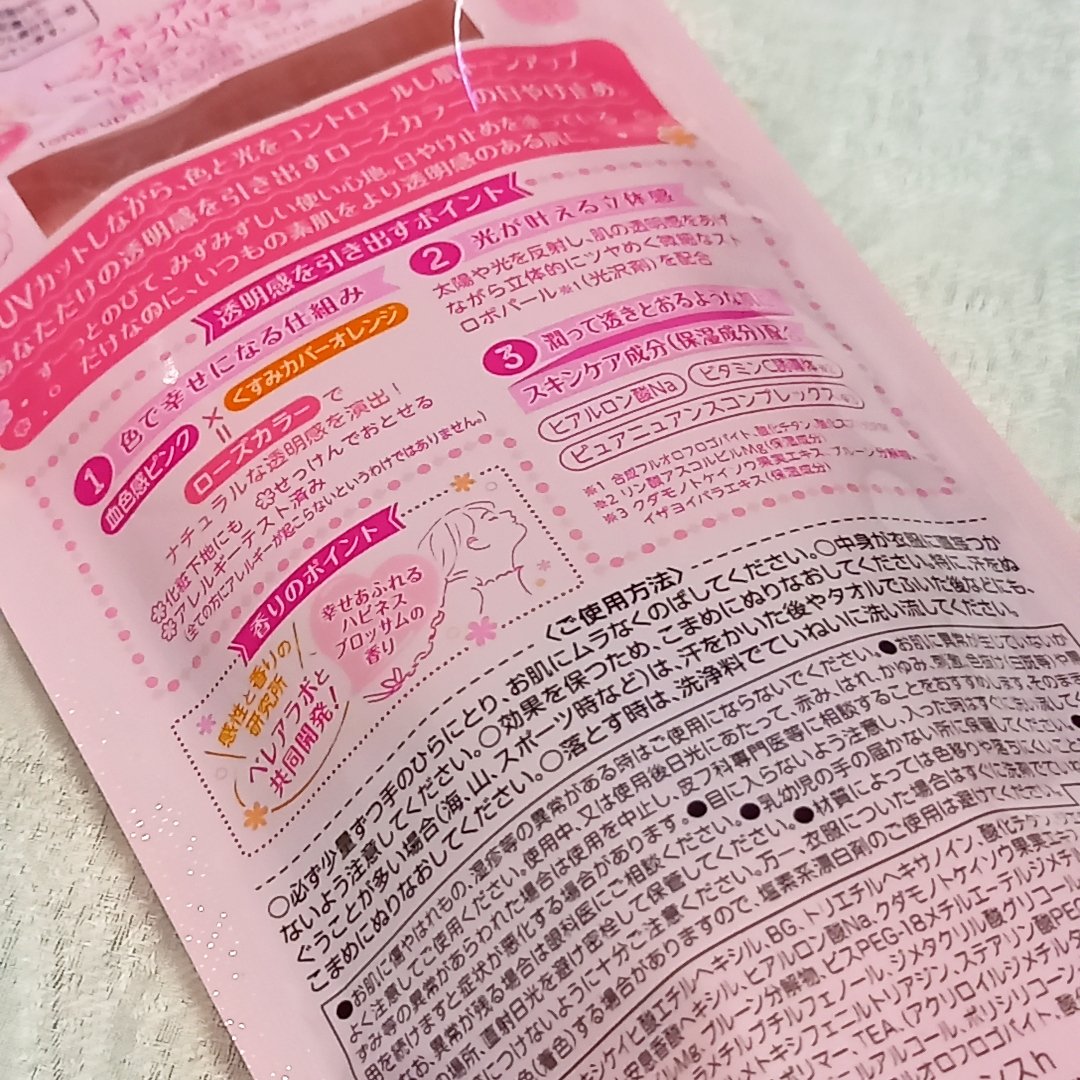 UVカットしながら、色と光をコントロールし肌トーンアップ
あなただけの透明感を引き出すローズカラーの日やけ止め。
すーっとのびて、みずみずしい使い心地。日やけ止めを塗っている
だけなのに、いつもの素肌をより透明感のある肌に。
透明感を引き出すポイント
1 色で幸せになる仕組み
血色感ピンク × くすみカバーオレンジ
=
ローズカラーで
ナチュラルな透明感を演出!
化粧下地にも せっけんでおとせる
アレルギーテスト済み
(全ての方にアレルギーが起こらないというわけではありません。)
2 光が叶える立体感
太陽や光を反射し、肌の透明感をあげ
ながら立体的にツヤめく微細なスト
ロボパール※1(光沢剤)を配合
3 潤って透きとおるような
スキンケア成分(保湿成分)配
ヒアルロン酸Na
ビタミンC誘導体
ピュアニュアンスコンプレックス
※1 合成フルオロフロゴパイト、酸化チタン、酸化
※2 リン酸アスコルビルMg(保湿成分)
※3 クダモノトケイソウ果実エキス、プルーン分解物、
イザヨイバラエキス(保湿成分)
香りのポイント
幸せあふれる
ハピネス
ブロッサムの
香り
感性と香りの
研究所
ヘレアラボと
共同開発!
〈ご使用方法〉
○必ず少量ずつ手のひらにとり、お肌にムラなくのばしてください。○中身が衣服に直接つか
ないよう注意してください。○効果を保つため、こまめにぬりなおしてください。特に、汗をぬ
ぐうことが多い場合(海、山、スポーツ時など)は、汗をかいた後やタオルでふいた後などにも、
こまめにぬりなおしてください。○落とす時は、洗浄料でていねいに洗い流してください。
●お肌に傷やはれもの、湿疹等の異常がある時はご使用にならないでください。●お肌に異常が生じていないか
よく注意してご使用ください。使用中、又は使用後日光にあたって、赤み、はれ、かゆみ、刺激、色抜け(白斑等)や黒
ずみ等の異常があらわれた場合は使用を中止し、皮フ科専門医等に相談することをおすすめします。そのまま
使用を続けますと症状が悪化する場合があります。●目に入らないよう注意し、入った時はすぐに洗い流して
なお、異常が残る場合は眼科医にご相談ください。●乳幼児の手の届かない所に保管してください。
の場所、直射日光を避け密栓して保管してください。●材質によっては色移りや落ちにくいこと
につけないように十分ご注意ください。万一、衣服についた場合はすぐに洗剤でていね
色(着色)する場合がありますので、塩素系漂白剤のご使用は避けてください。
キシケイヒ酸エチルヘキシル、BG、トリエチルヘキサノイン、酸化チタン
安息香酸ヘキシル、ヒアルロン酸Na、クダモノトケイソウ果実エキ
ルMg、プルーン分解物、ビスPEG-18メチルエーテルジメチル
ラメチルブチルフェノール、ジメタクリル酸グリコール
ルメトキシフェニルトリアジン、ステアリン酸PEG
ポリマー、TEA、(アクリロイルジメチルタ
アルコール、ポリシリコーン
オロフロゴパイト、酸
ンスh